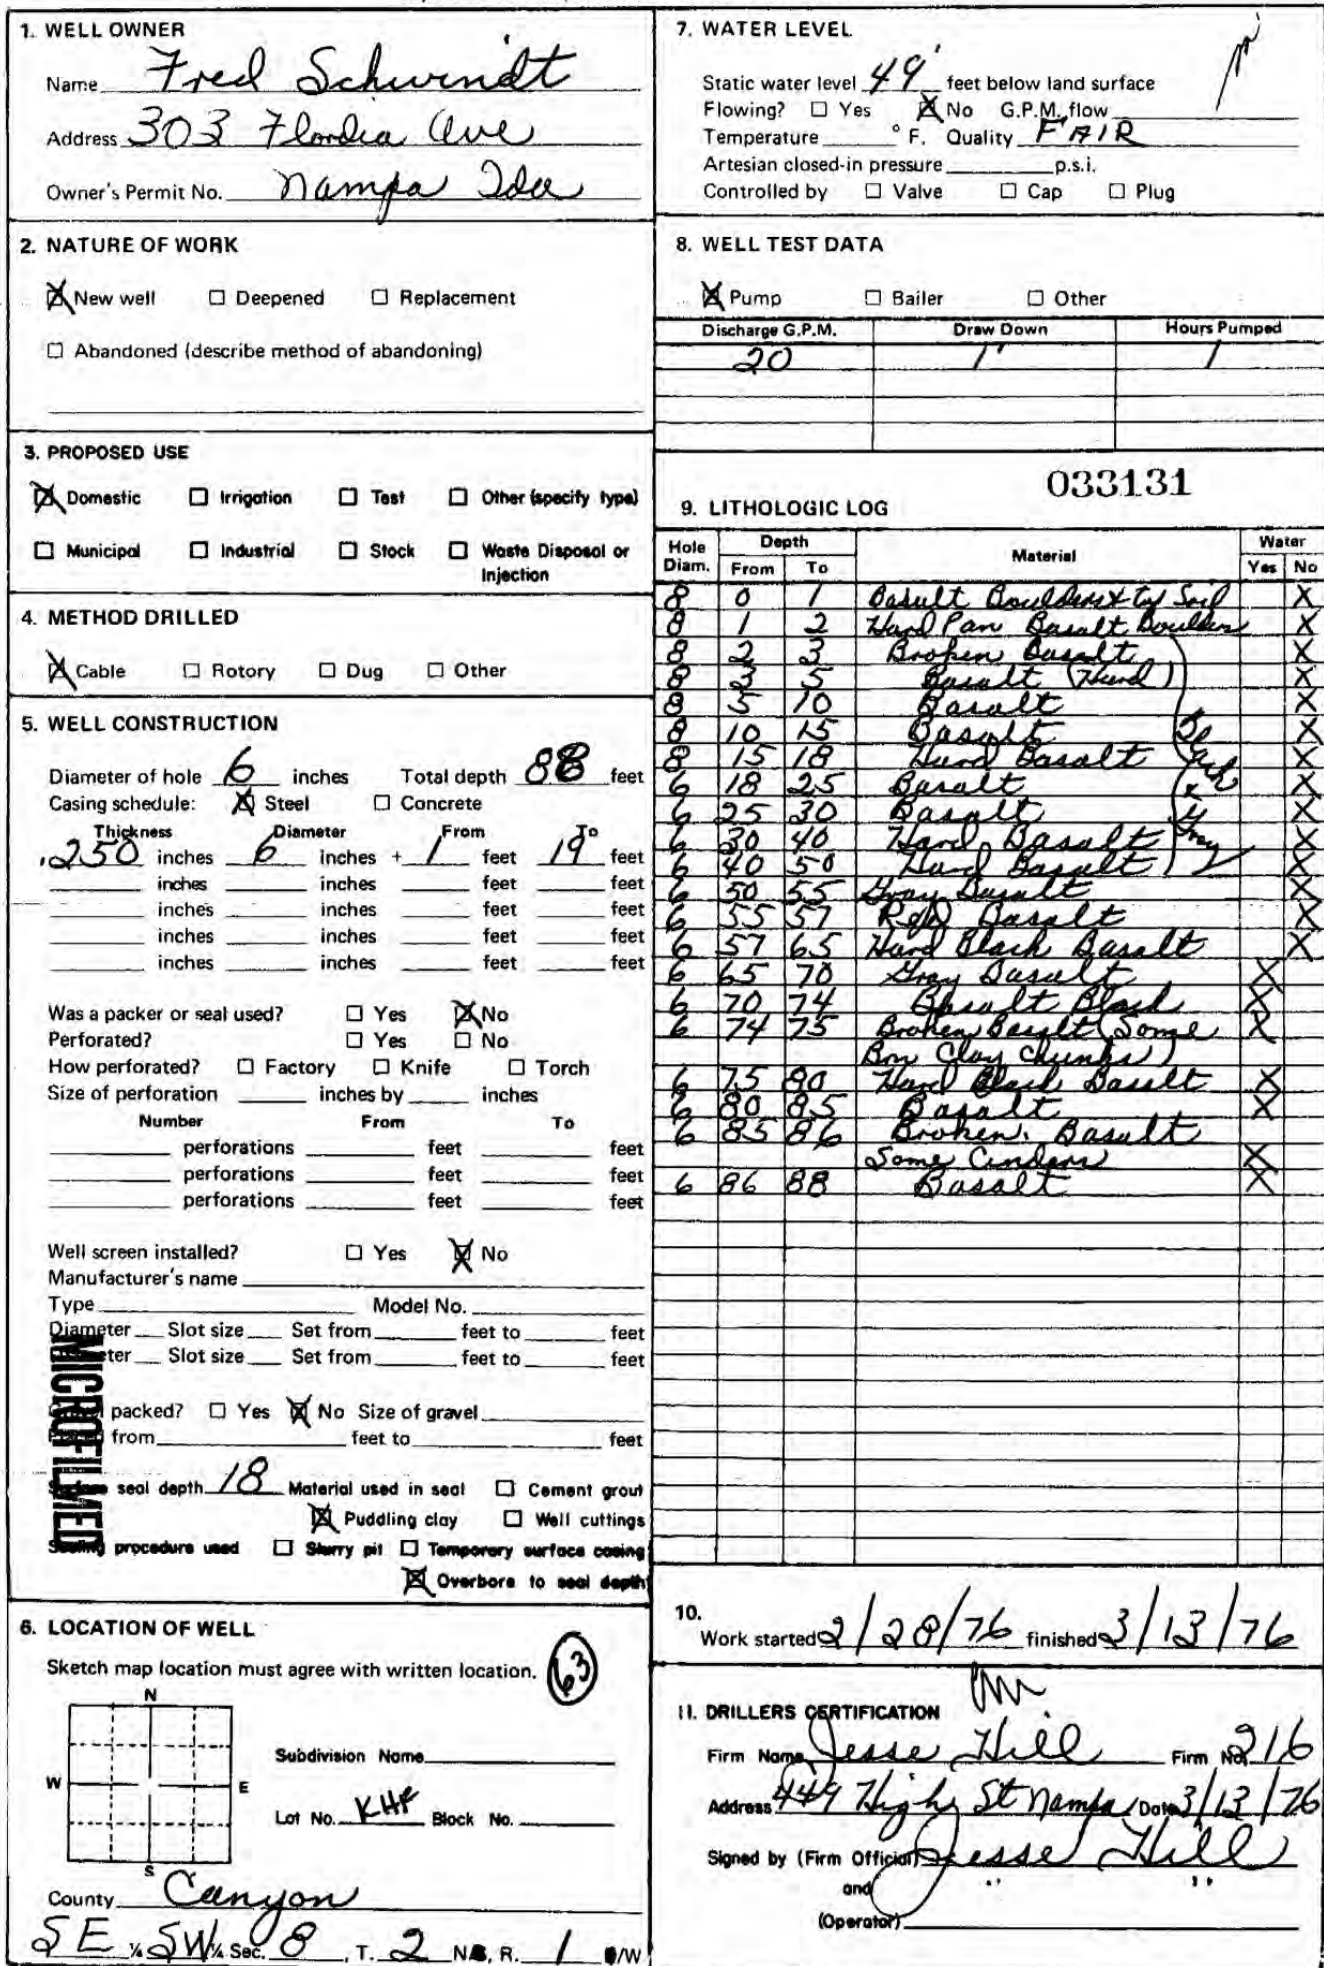 1. WELL OWNER
Name Fred Schwindt
Address 303 Flordia Ave
Owner's Permit No. Nampa Ida
2. NATURE OF WORK
New well Deepened Replacement
Abandoned (describe method of abandoning)
3. PROPOSED USE
Domestic Irrigation Test Other (specify type)
Municipal Industrial Stock Waste Disposal or
Injection
4. METHOD DRILLED
Cable Rotory Dug Other
5. WELL CONSTRUCTION
Diameter of hole 6 inches Total depth 88 feet
Casing schedule: Steel Concrete
Thickness Diameter From To
.250 inches 6 inches + 1 feet 19 feet
inches inches feet feet
inches inches feet feet
inches inches feet feet
inches inches feet feet
Was a packer or seal used? Yes No
Perforated? Yes No
How perforated? Factory Knife Torch
Size of perforation inches by inches
Number From To
perforations feet feet
perforations feet feet
perforations feet feet
Well screen installed? Yes No
Manufacturer's name
Type Model No.
Diameter Slot size Set from feet to feet
Slot size Set from feet to feet
packed? Yes No Size of gravel
from feet to feet
seal depth 18 Material used in seal Cement grout
Puddling clay Well cuttings
Sealing procedure used Slurry pit Temporary surface casing
Overbore to seal depth
MICROFILMED
6. LOCATION OF WELL
Sketch map location must agree with written location. 63
N
W E
S
Subdivision Name
Lot No. KHF Block No.
County Canyon
SE ¼ SW ¼ Sec. 8, T. 2 N, R. 1 /W
7. WATER LEVEL
Static water level 49' feet below land surface
Flowing? Yes No G.P.M. flow
Temperature ° F. Quality FAIR
Artesian closed-in pressure p.s.i.
Controlled by Valve Cap Plug
8. WELL TEST DATA
Pump Bailer Other
Discharge G.P.M. Draw Down Hours Pumped
20 1' 1
033131
9. LITHOLOGIC LOG
Hole Depth Material Water
Diam. From To Yes No
8 0 1 Basult Boulders & top Soil X
8 1 2 Hard Pan Basalt Boulders X
8 2 3 Broken Basalt X
8 3 5 Basalt (Hard) X
8 5 10 Basalt X
8 10 15 Basalt X
8 15 18 Hard Basalt X
6 18 25 Basalt X
6 25 30 Basalt X
6 30 40 Hard Basalt Gray X
6 40 50 Hard Basalt X
6 50 55 Gray Basalt X
6 55 57 Red Basalt X
6 57 65 Hard Black Basalt X
6 65 70 Gray Basalt X
6 70 74 Basalt Black X
6 74 75 Broken Basalt (Some X
Brn Clay Chunks)
6 75 80 Hard Black Basalt X
6 80 85 Basalt X
6 85 86 Broken Basalt
Some Cinders X
6 86 88 Basalt X
10.
Work started 2/28/76 finished 3/13/76
11. DRILLERS CERTIFICATION
Firm Name Jesse Hill Firm No. 216
Address 449 High St Nampa Date 3/13/76
Signed by (Firm Official) Jesse Hill
and " "
(Operator)